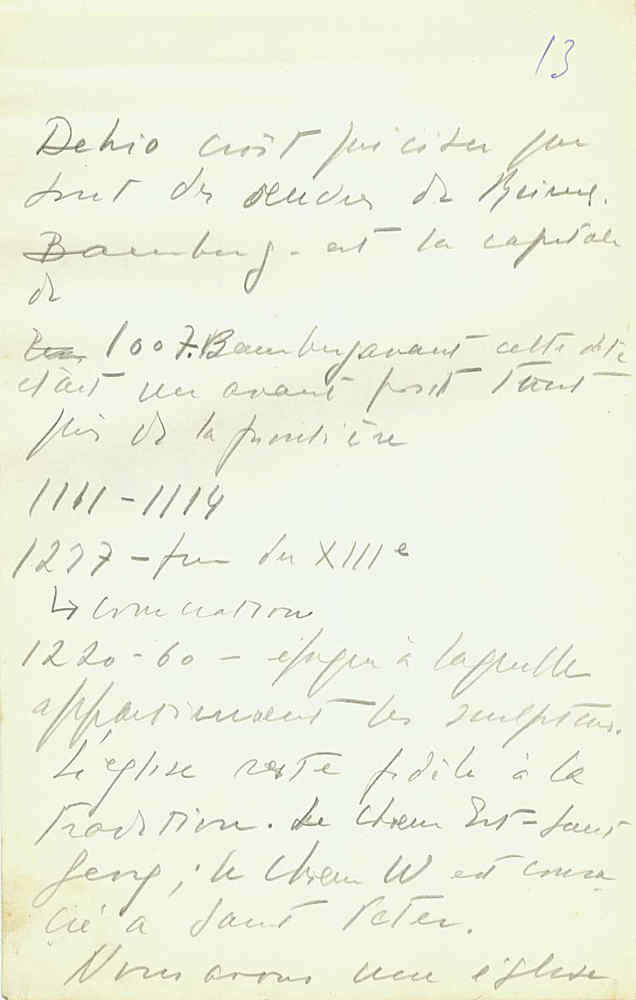 13
Dehio croit préciser que
sont des œuvres de Reims.
Bamberg - est la capitale
de
1007. Bamberg avant cette date
était un avant post tout
près de la frontière
1111 - 1114
1237 - fin du XIIIe
↳ consécration
1220 - 60 - époque à laquelle
appartiennent les sculptures.
L'église reste fidèle à la
tradition. Le Chœur Est - Sant
Georg ; le Chœur W est consa
cré a Sant Peter.
Nous avons une église